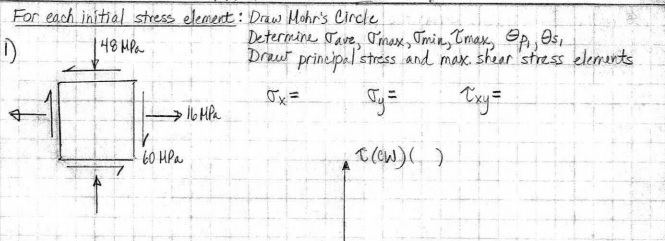 For each initial stress element: Draw Mohr's Circle
Determine σave, σmax, σmin, τmax, θp₁, θs₁
Draw principal stress and max. shear stress elements
1)
48 MPa
σx= σy= τxy=
16 MPa
60 MPa
τ(CW)( )